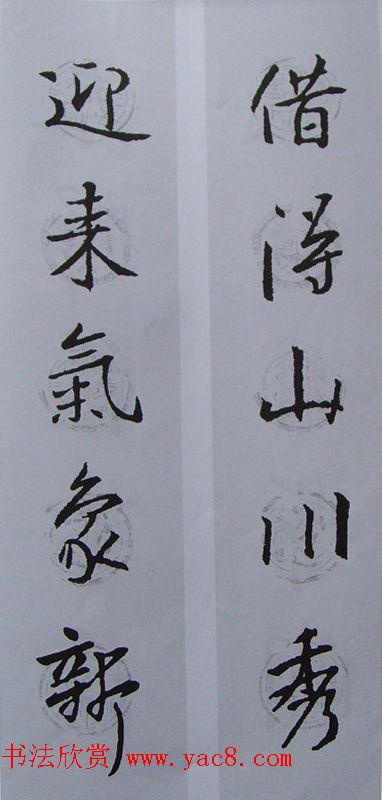 借得山川秀
迎来氣象新
书法欣赏 www.yac8.com